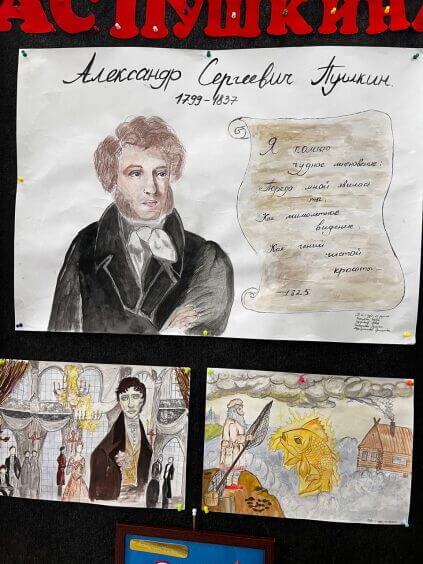 АС ПУШКИНА
Александр Сергеевич Пушкин.
1799-1837
Я помню
чудное мгновенье:
Передо мной явилась
ты,
Как мимолетное
видение
Как гений
чистой
красоты
1825